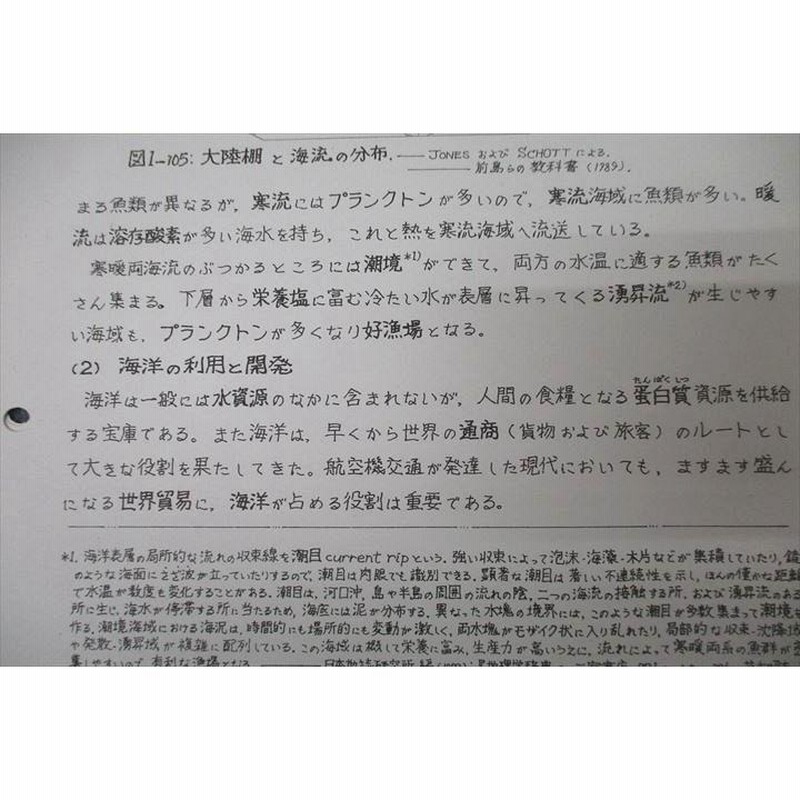 図1-105: 大陸棚と海流の分布. ―― JONES および SCHOTT による.
―― 前島らの教科書 (1989).
まる魚類が異なるが, 寒流にはプランクトンが多いので, 寒流海域に魚類が多い。暖
流は溶存酸素が多い海水を持ち, これと熱を寒流海域へ流送している。
寒暖両海流のぶつかるところには潮境*1)ができて, 両方の水温に適する魚類がたく
さん集まる。下層から栄養塩に富む冷たい水が表層に昇ってくる湧昇流*2)が生じやす
い海域も, プランクトンが多くなり好漁場となる。
(2) 海洋の利用と開発
海洋は一般には水資源のなかに含まれないが, 人間の食糧となる蛋白質資源を供給
たんぱくしつ
する宝庫である。また海洋は, 早くから世界の通商 (貨物および旅客) のルートとし
て大きな役割を果たしてきた。航空機交通が発達した現代においても, ますます盛ん
になる世界貿易に, 海洋が占める役割は重要である。
*1. 海洋表層の局所的な流れの収束線を潮目 current rip という. 強い収束によって泡沫・海藻・木片などが集積していたり, 鏡
のような海面にさざ波が立っていたりするので, 潮目は肉眼でも識別できる. 顕著な潮目は著しい不連続性を示し, ほんの僅かな距離
で水温が数度も変化することがある. 潮目は, 河口沖, 島や半島の周囲の流れの陰, 二つの海流の接触する所, および湧昇流のある
所に生じ, 海水が停滞する所に当たるため, 海底には泥が分布する. 異なった水塊の境界には, このような潮目が多数集まって潮境を
作る. 潮境海域における海況は, 時間的にも場所的にも変動が激しく, 両水塊がモザイク状に入り乱れたり, 局部的な収束・沈降域
や発散・湧昇域が複雑に配列している. この海域は概して栄養に富み, 生産力が高いうえに, 流れによって寒暖両系の魚群が
集しやすいので, 有利な漁場となる.